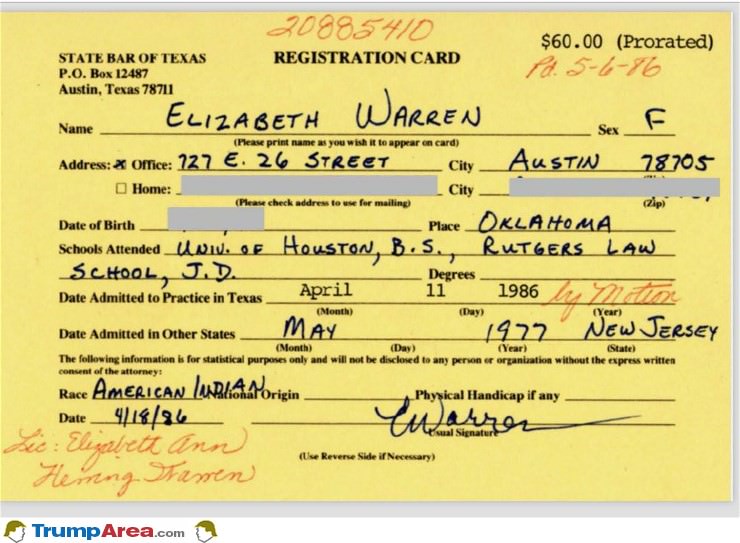 20885410
STATE BAR OF TEXAS REGISTRATION CARD $60.00 (Prorated)
P.O. Box 12487 Pd. 5-6-86
Austin, Texas 78711
Name ELIZABETH WARREN Sex F
(Please print name as you wish it to appear on card)
Address: x Office: 727 E. 26 STREET City AUSTIN 78705
Home: City
(Please check address to use for mailing) (Zip)
Date of Birth Place OKLAHOMA
Schools Attended UNIV. OF HOUSTON, B.S., RUTGERS LAW
SCHOOL, J.D. Degrees
Date Admitted to Practice in Texas April 11 1986 by Motion
(Month) (Day) (Year)
Date Admitted in Other States MAY 1977 NEW JERSEY
(Month) (Day) (Year) (State)
The following information is for statistical purposes only and will not be disclosed to any person or organization without the express written
consent of the attorney:
Race AMERICAN INDIAN National Origin Physical Handicap if any
Date 4/18/86 EWarren
Usual Signature
Lic: Elizabeth Ann
Herring Warren
(Use Reverse Side if Necessary)
TrumpArea.com